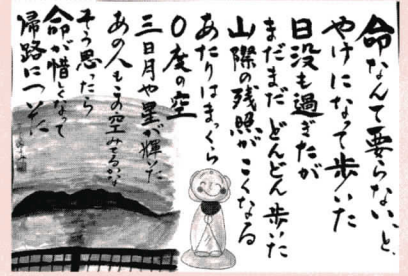 命なんて要らないと、
やけになって歩いた
日没も過ぎたが
まだまだどんどん歩いた
山際の残照がこくなる
あたりはまっくら
０度の空
三日月や星が輝いた
あの人もこの空みてるかな
そう思ったら
命が惜しくなって
帰路についた